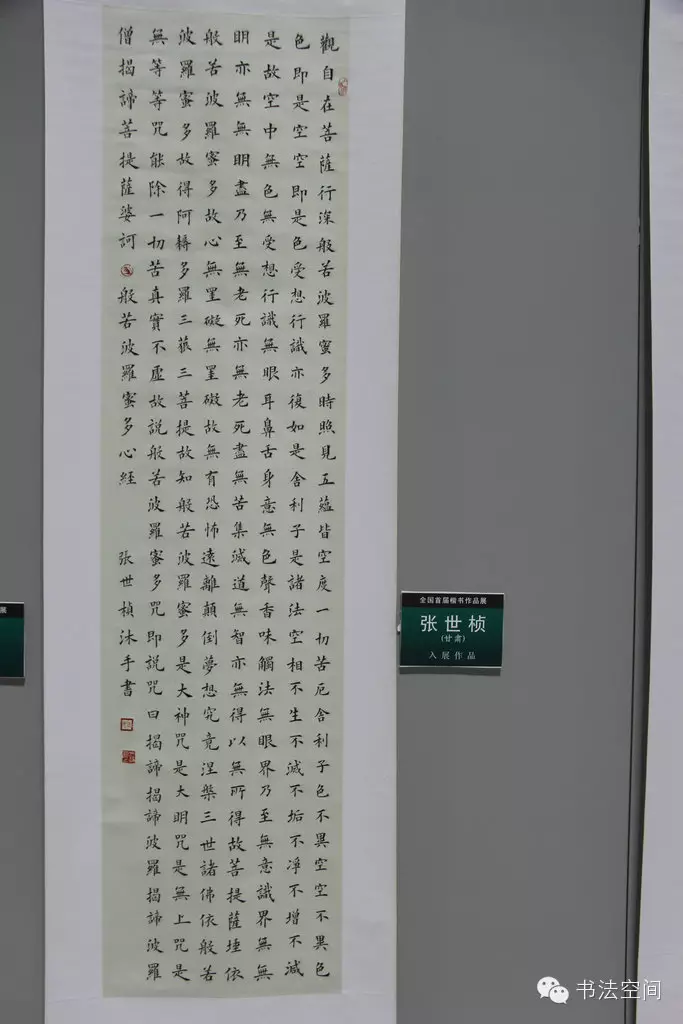 觀自在菩薩行深般若波羅蜜多時照見五蘊皆空度一切苦厄舍利子色不異空空不異色
色即是空空即是色受想行識亦復如是舍利子是諸法空相不生不滅不垢不淨不增不減
是故空中無色無受想行識無眼耳鼻舌身意無色聲香味觸法無眼界乃至無意識界無無
明亦無無明盡乃至無老死亦無老死盡無苦集滅道無智亦無得以無所得故菩提薩埵依
般若波羅蜜多故心無罣礙無罣礙故無有恐怖遠離顛倒夢想究竟涅槃三世諸佛依般若
波羅蜜多故得阿耨多羅三藐三菩提故知般若波羅蜜多是大神咒是大明咒是無上咒是
無等等咒能除一切苦真實不虛故說般若波羅蜜多咒即說咒曰揭諦揭諦波羅揭諦波羅
僧揭諦菩提薩婆訶 般若波羅蜜多心經 張世楨沐手書
全国首届楷书作品展
张世桢
(甘肃)
入展作品
展
书法空间